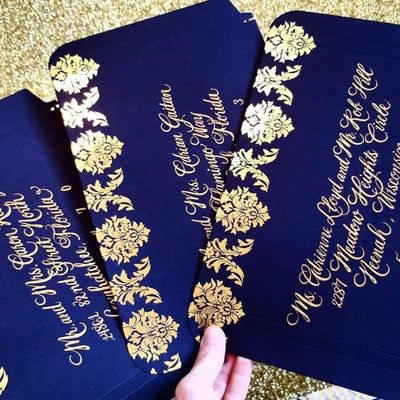 Mr. and Mrs. Aaron
82nd Street North
Florida
0
and Mrs. Adrian Gaitan
Flamingo Way
Florida
3
Ms. Adrienne Lloyd and Mr. Rob Hill
2287 Meadow Heights Circle
Neenah, Wisconsin